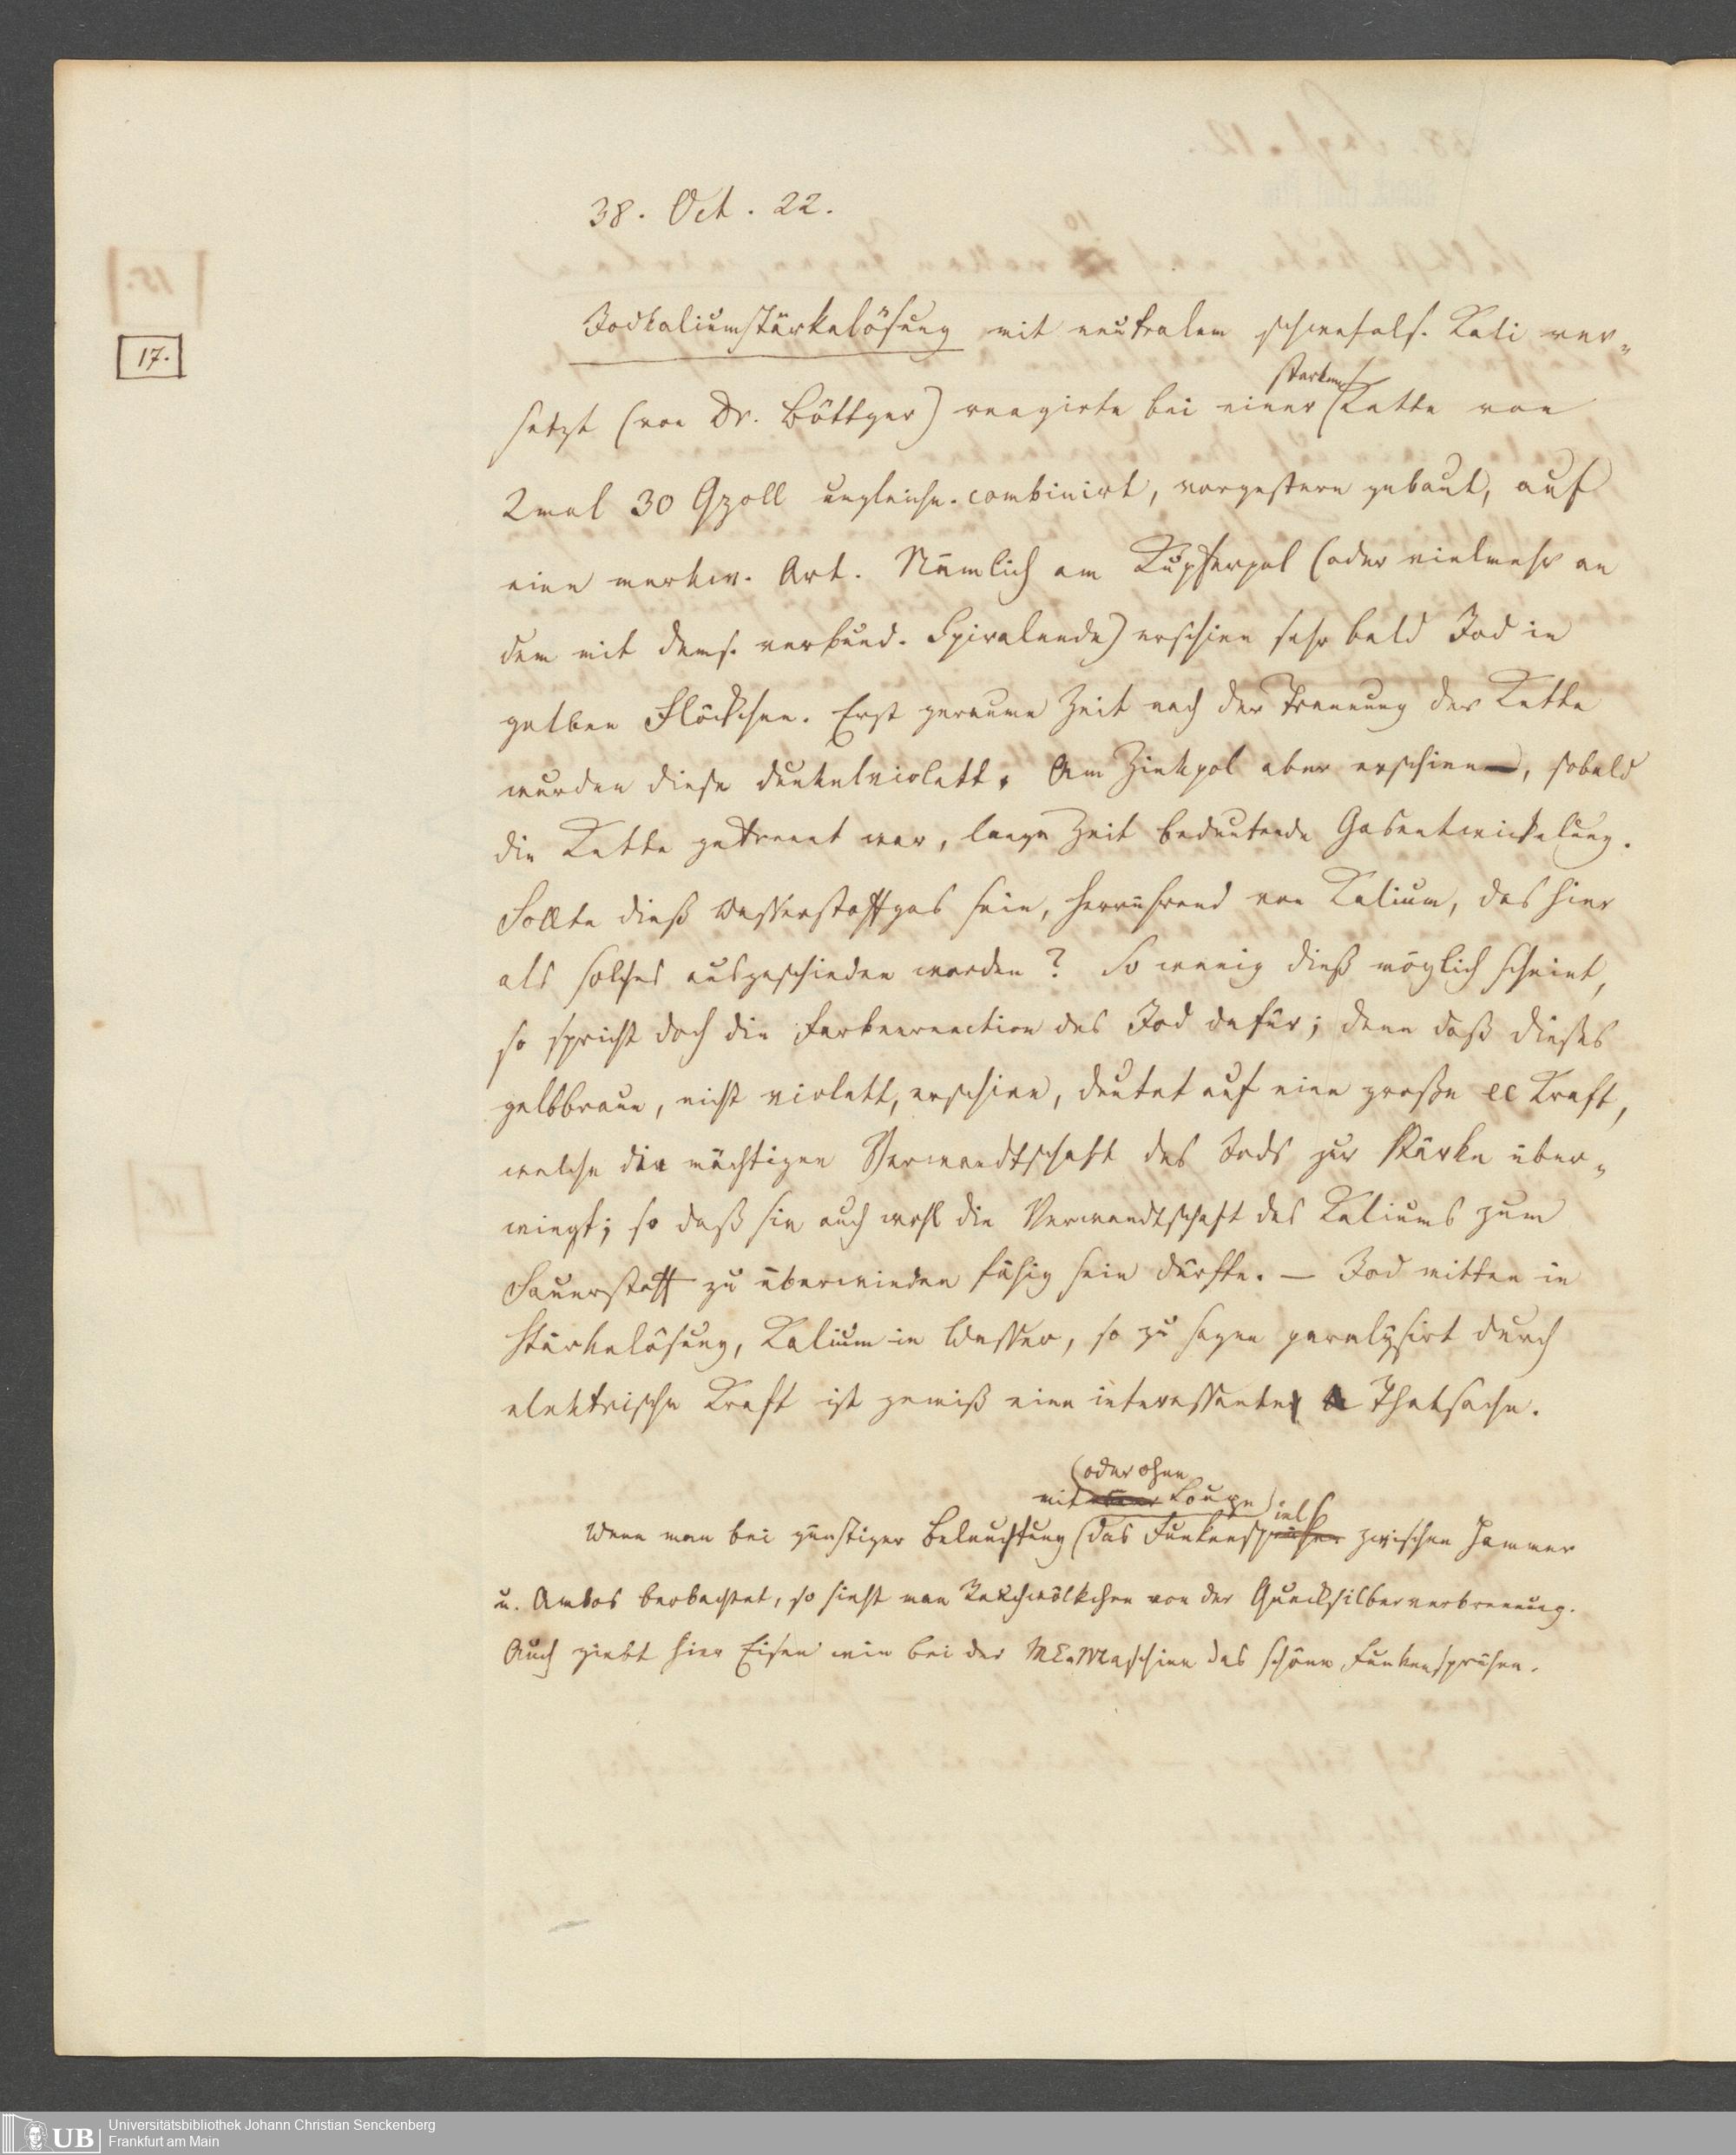 38. Oct. 22.
17.
Jodkaliumstärkelösung mit neutralem schwefels. Kali ver-
starken
setzt (von Dr. Böttger) reagirte bei einer Kette von
2mal 30 Qzoll ungleichn. combinirt, vorgestern gebaut, auf
eine merkw. Art. Nämlich am Kupferpol (oder vielmehr an
dem mit dems. verbund. Spiralende) erschien sehr bald Jod in
gelben Flöckchen. Erst geraume Zeit nach der Trennung der Kette
wurden diese dunkelviolett. Am Zinkpol aber erschien, sobald
die Kette getrennt war, lange Zeit bedeutende Gasentwickelung.
Sollte dieß Wasserstoffgas sein, herrührend von Kalium, das hier
als solches ausgeschieden worden? So wenig dieß möglich scheint,
so spricht doch die Farbenreaction des Jod dafür; denn daß dieses
gelbbraun, nicht violett, erschien, deutet auf eine große el Kraft,
welche die mächtigen Verwandtschaft des Jods zur Stärke über-
wiegt; so daß sie auch wohl die Verwandtschaft des Kaliums zum
Sauerstoff zu überwinden fähig sein dürfte. — Jod mitten in
Stärkelösung, Kalium in Wasser, so zu sagen paralysirt durch
elektrische Kraft ist gewiß eine interessante Thatsache.
(oder ohne
mit Loupe) iel
Wenn man bei günstiger Beleuchtung (das Funkensprühen zwischen Hammer
u. Ambos beobachtet, so sieht man Rauchwölkchen von der Quecksilberverbrennung.
Auch giebt hier Eisen wie bei der ME.Maschine das schöne Funkensprühen.
Universitätsbibliothek Johann Christian Senckenberg
UB Frankfurt am Main